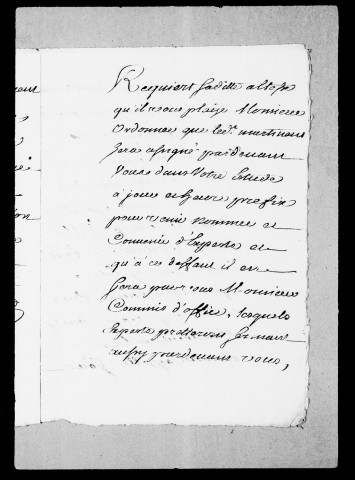 Requiert laditte
qu'il vous plaise Monsieur
ordonner que led.
sera assigné pardevant
Vous dans Votre Etude
à jour et heure prefix
pour venir nommer et
Convenir d'Experts et
qu'à ce deffaut il en
sera par vous Monsieur
Commis d'office, lesquels
Experts presteront serment
aussy pardevant vous,